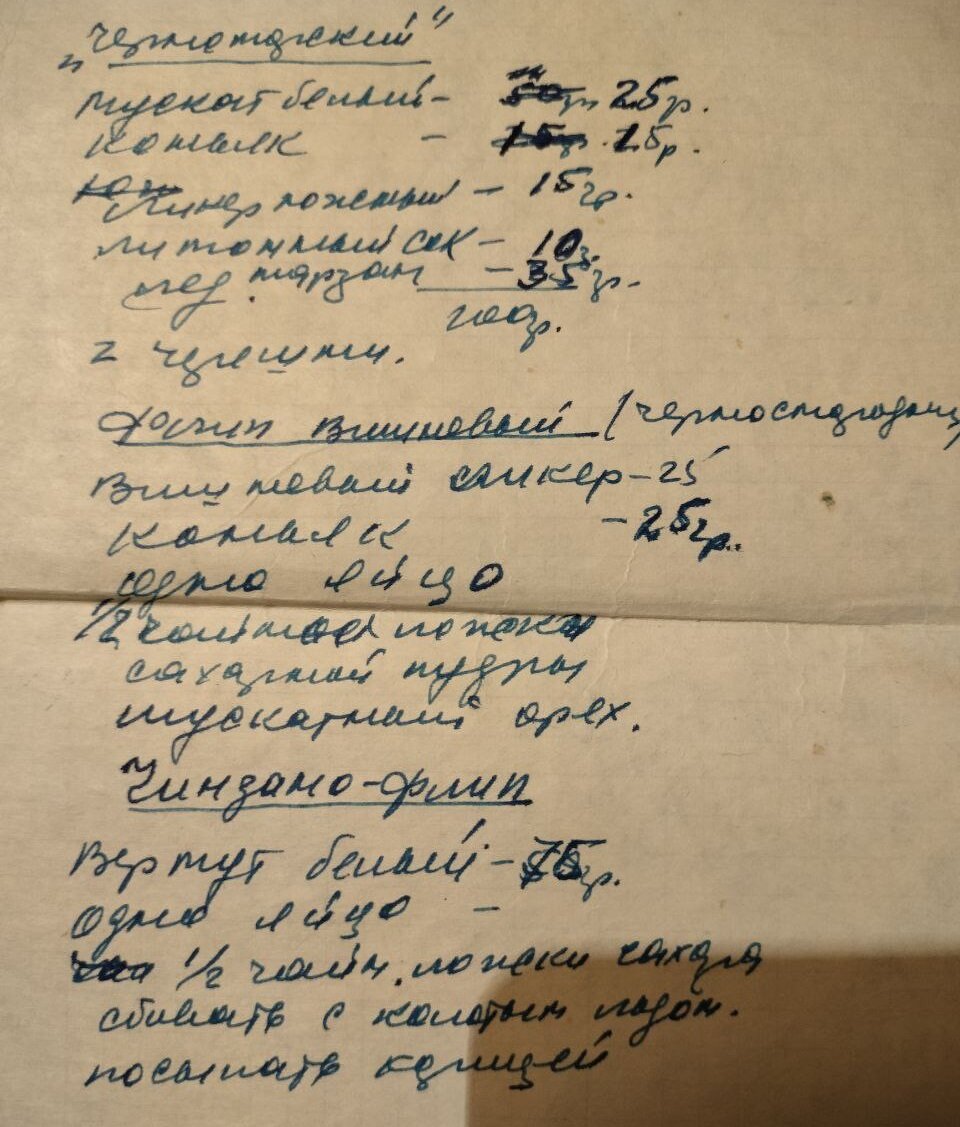 „Черноморский"
мускат белый - 25 гр.
коньяк - 15 гр.
Ликер южный - 15 гр.
лимонный сок - 10 г.
лед нарзан - 35 гр.
100 гр.
2 черешни.
вишневый (черносмородин
Вишневый ликер - 25
коньяк - 25 гр.
одно яйцо
1/2 чайной ложки
сахарной пудры
мускатный орех.
Чинзано-флип
Вермут белый - 75 гр.
одно яйцо -
1/2 чайн. ложки сахара
сбивать с колотым льдом.
посыпать корицей